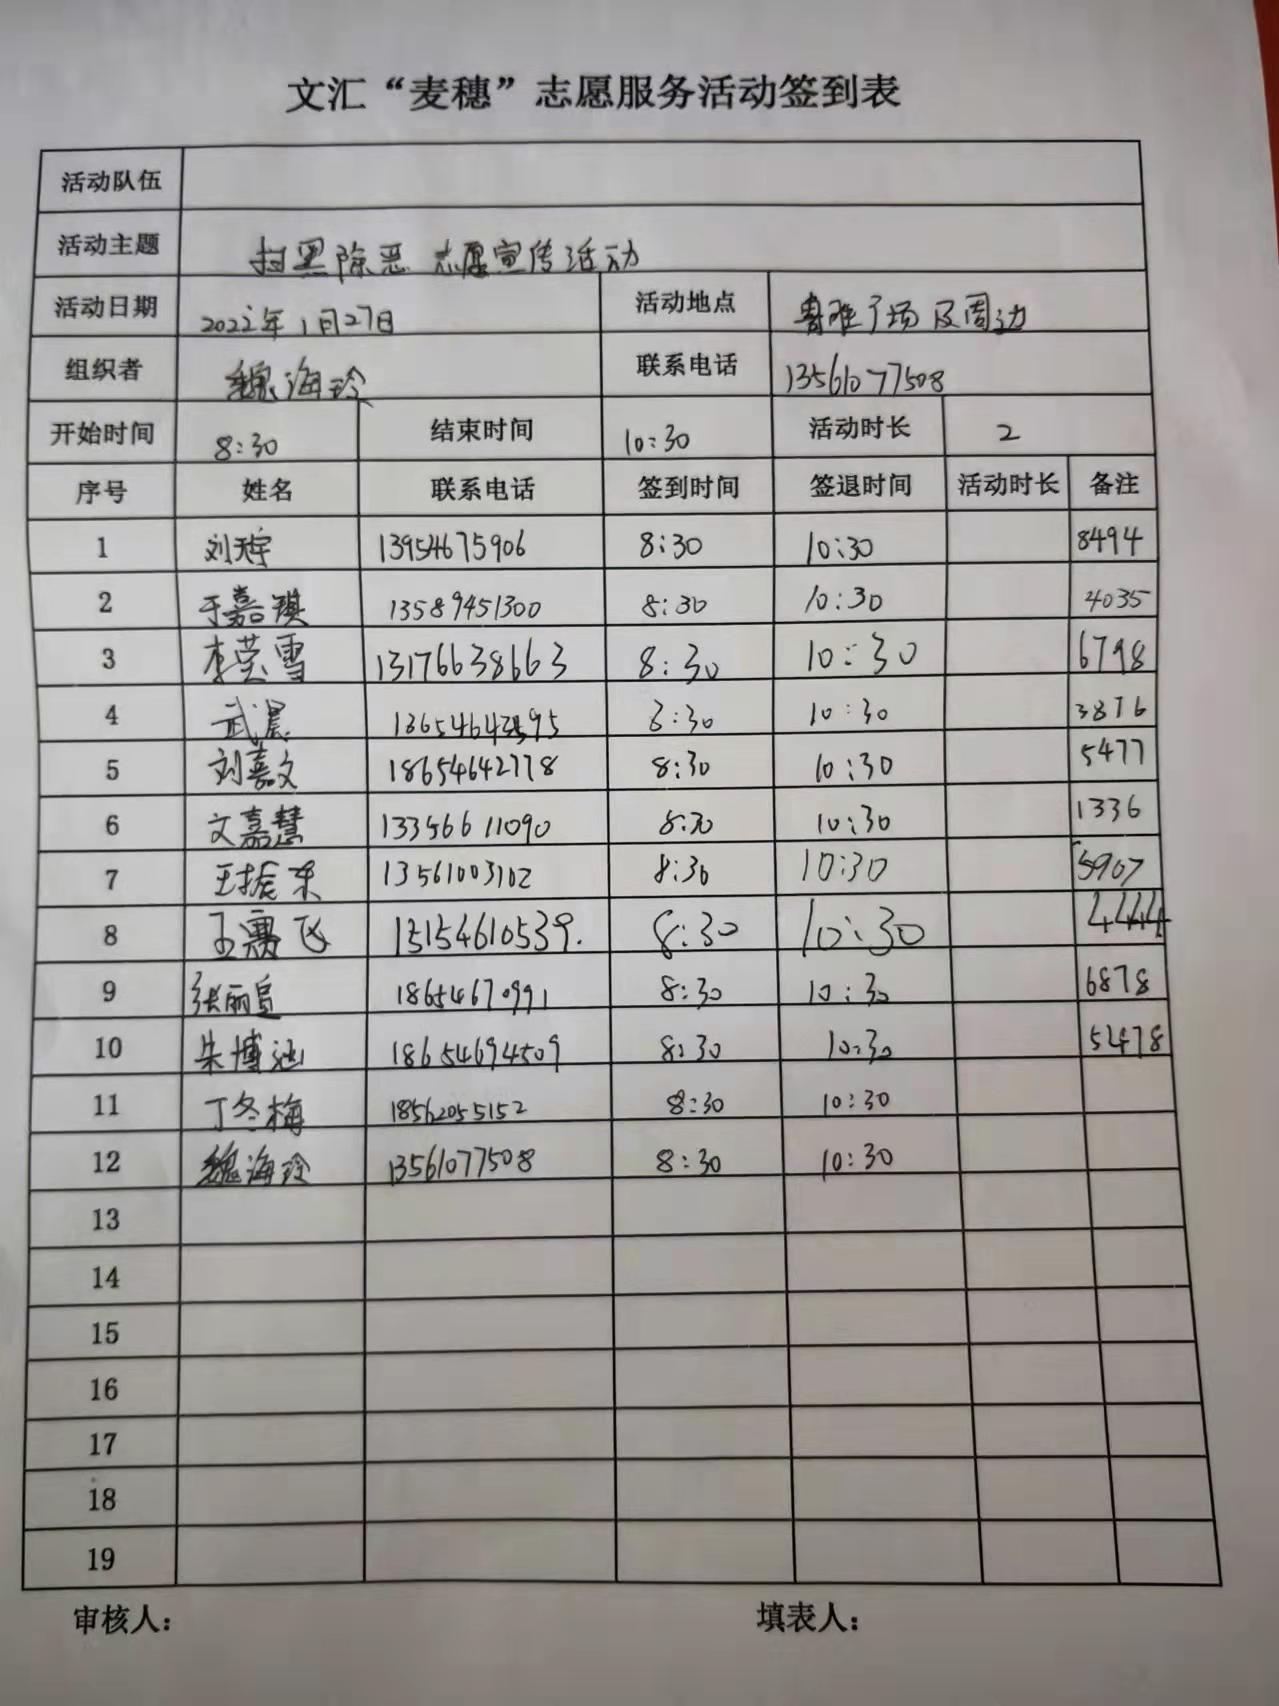 文汇“麦穗”志愿服务活动签到表
活动队伍
活动主题 扫黑除恶 志愿宣传活动
活动日期 2022年1月27日 活动地点 广场及周边
组织者 魏海玲 联系电话 13561077508
开始时间 8:30 结束时间 10:30 活动时长 2
序号 姓名 联系电话 签到时间 签退时间 活动时长 备注
1 刘天宇 13954675906 8:30 10:30 8494
2 于嘉琪 13589451300 8:30 10:30 4035
3 李荣雪 13176638663 8:30 10:30 6798
4 武晨 8:30 10:30 3876
5 刘嘉文 18654642778 8:30 10:30 5477
6 文嘉慧 13356611090 8:30 10:30 1336
7 王振东 13561003102 8:30 10:30 5907
8 王飞 15154610539. 8:30 10:30 4444
9 张丽 18654670991 8:30 10:30 6878
10 朱博涵 18654694509 8:30 10:30 5478
11 丁冬梅 18562055152 8:30 10:30
12 魏海玲 13561077508 8:30 10:30
13
14
15
16
17
18
19
审核人： 填表人：